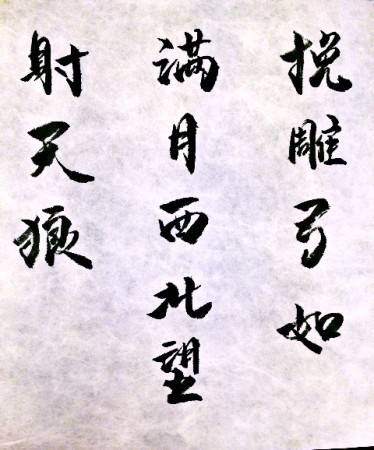 挽雕弓如
满月西北望
射天狼